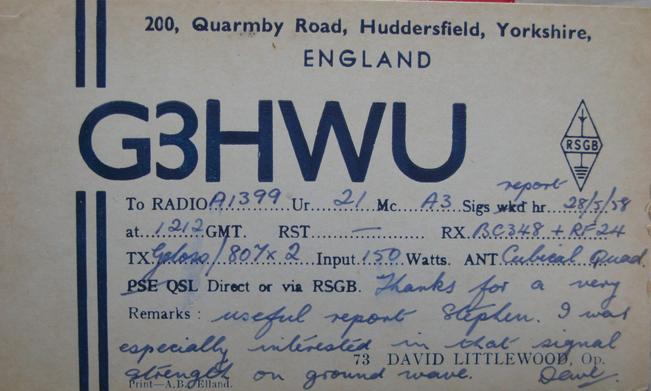 200, Quarmby Road, Huddersfield, Yorkshire,
ENGLAND
G3HWU
RSGB
report
To RADIO A1399 Ur 21 Mc A3 Sigs wkd hr 28/5/58
at 1212 GMT. RST — RX BC348 + RF24
TX Geloso/807x2 Input 150 Watts. ANT Cubical Quad
PSE QSL Direct or via RSGB. Thanks for a very
Remarks : useful report Stephen. I was
especially interested in that signal
73 DAVID LITTLEWOOD, Op.
strength on ground wave. Dave
Print—A.B., Elland.